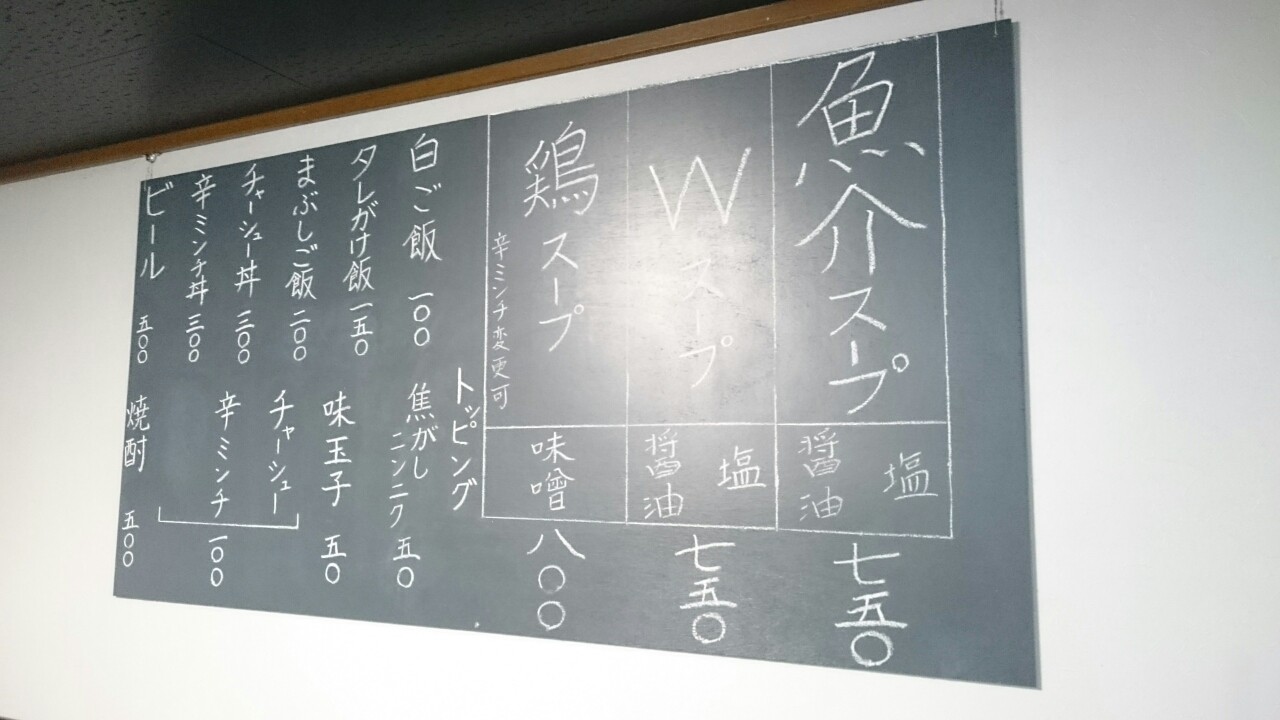 魚介スープ
塩
醤油
七五〇
Wスープ
塩
醤油
七五〇
鶏スープ
辛ミンチ変更可
味噌
八〇〇
白ご飯 一〇〇
タレがけ飯 一五〇
まぶしご飯 二〇〇
チャーシュー丼 三〇〇
辛ミンチ丼 三〇〇
ビール 五〇〇
トッピング
焦がしニンニク 五〇
味玉子 五〇
チャーシュー
辛ミンチ
一〇〇
焼酎 五〇〇